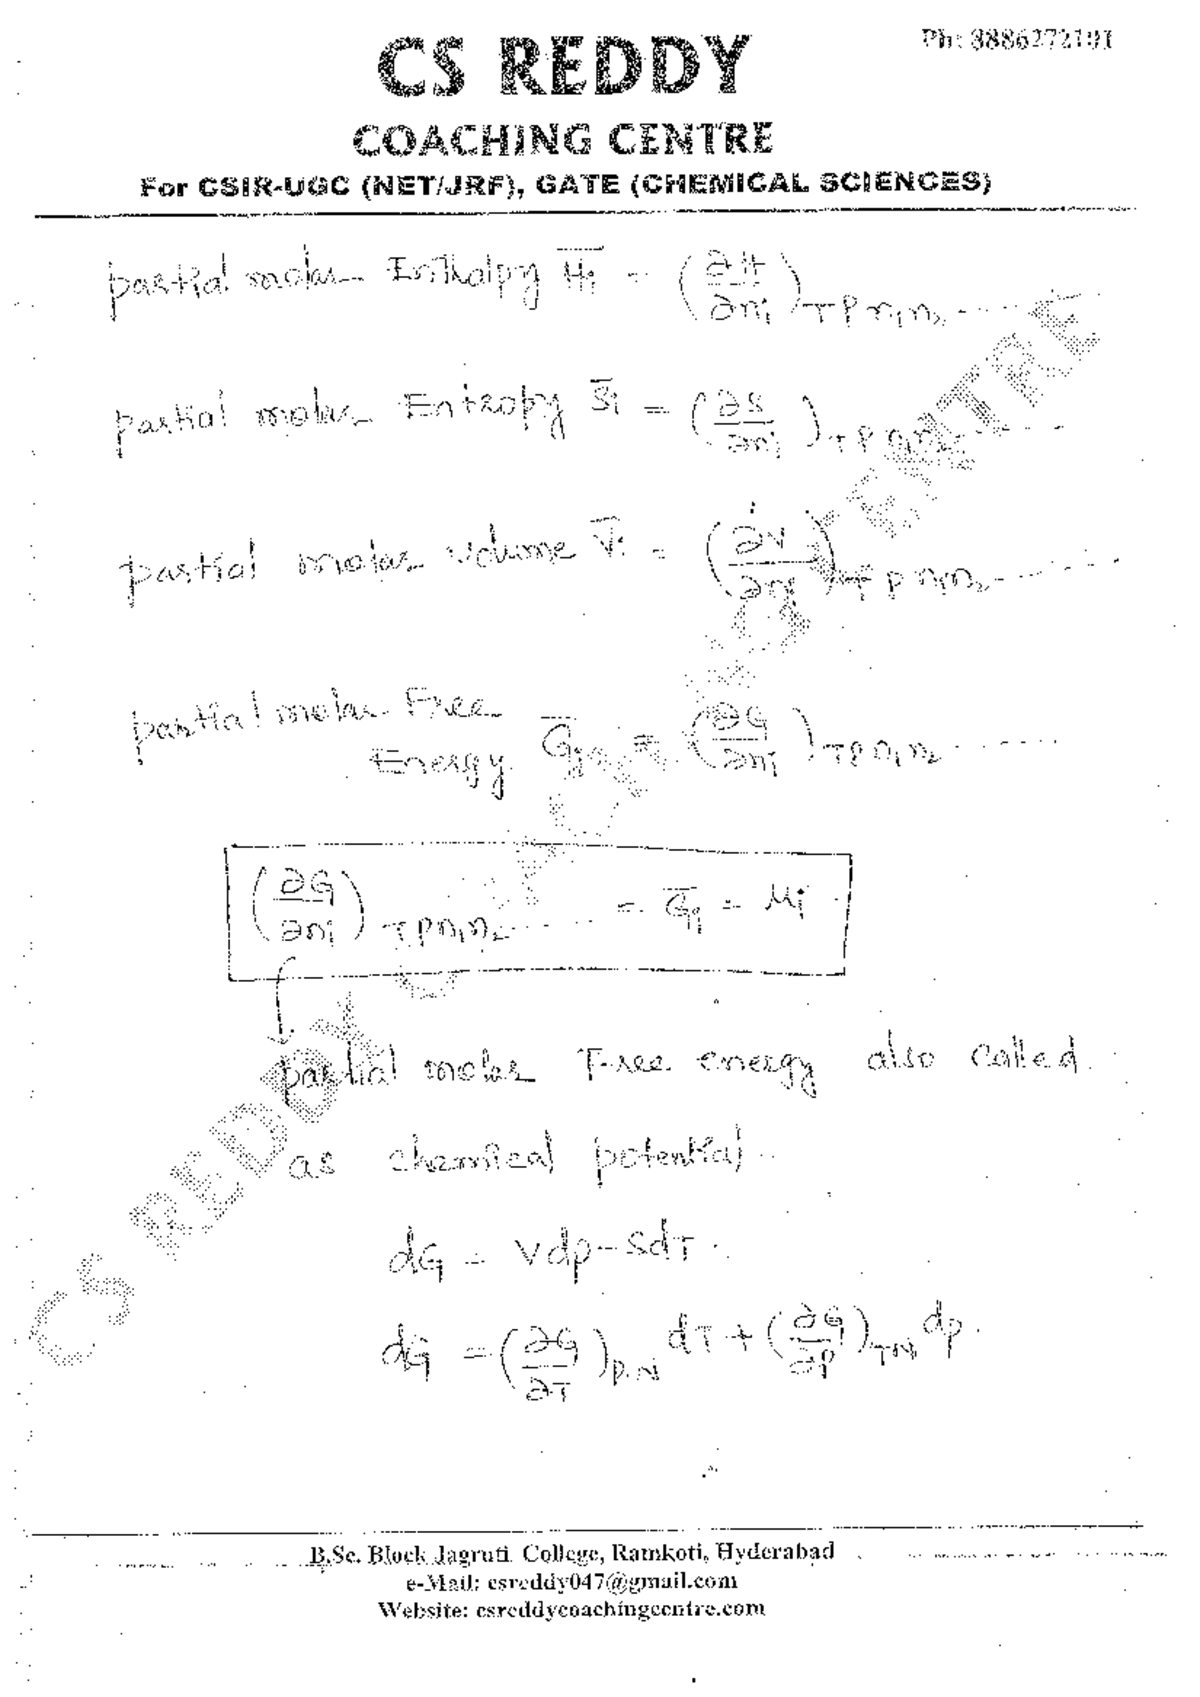 Ph: 8886272101
CS REDDY
COACHING CENTRE
For CSIR-UGC (NET/JRF), GATE (CHEMICAL SCIENCES)
partial molar Enthalpy H̅i = (∂H/∂ni)T P n1 n2 ......
partial molar Entropy S̅i = (∂S/∂ni)T P n1 n2 ......
partial molar volume V̅i = (∂V/∂ni)T P n1 n2 ......
partial molar Free
Energy G̅i = (∂G/∂ni)T P n1 n2 ......
(∂G/∂ni)T P n1 n2 ...... = G̅i = μi
partial molar Free energy also called
as chemical potential
dG = Vdp - SdT
dG = (∂G/∂T)P.N dT + (∂G/∂P)T.N dp.
CS REDDY COACHING CENTRE
B.Sc. Block Jagruti College, Ramkoti, Hyderabad
e-Mail: csreddy047@gmail.com
Website: csreddycoachingcentre.com